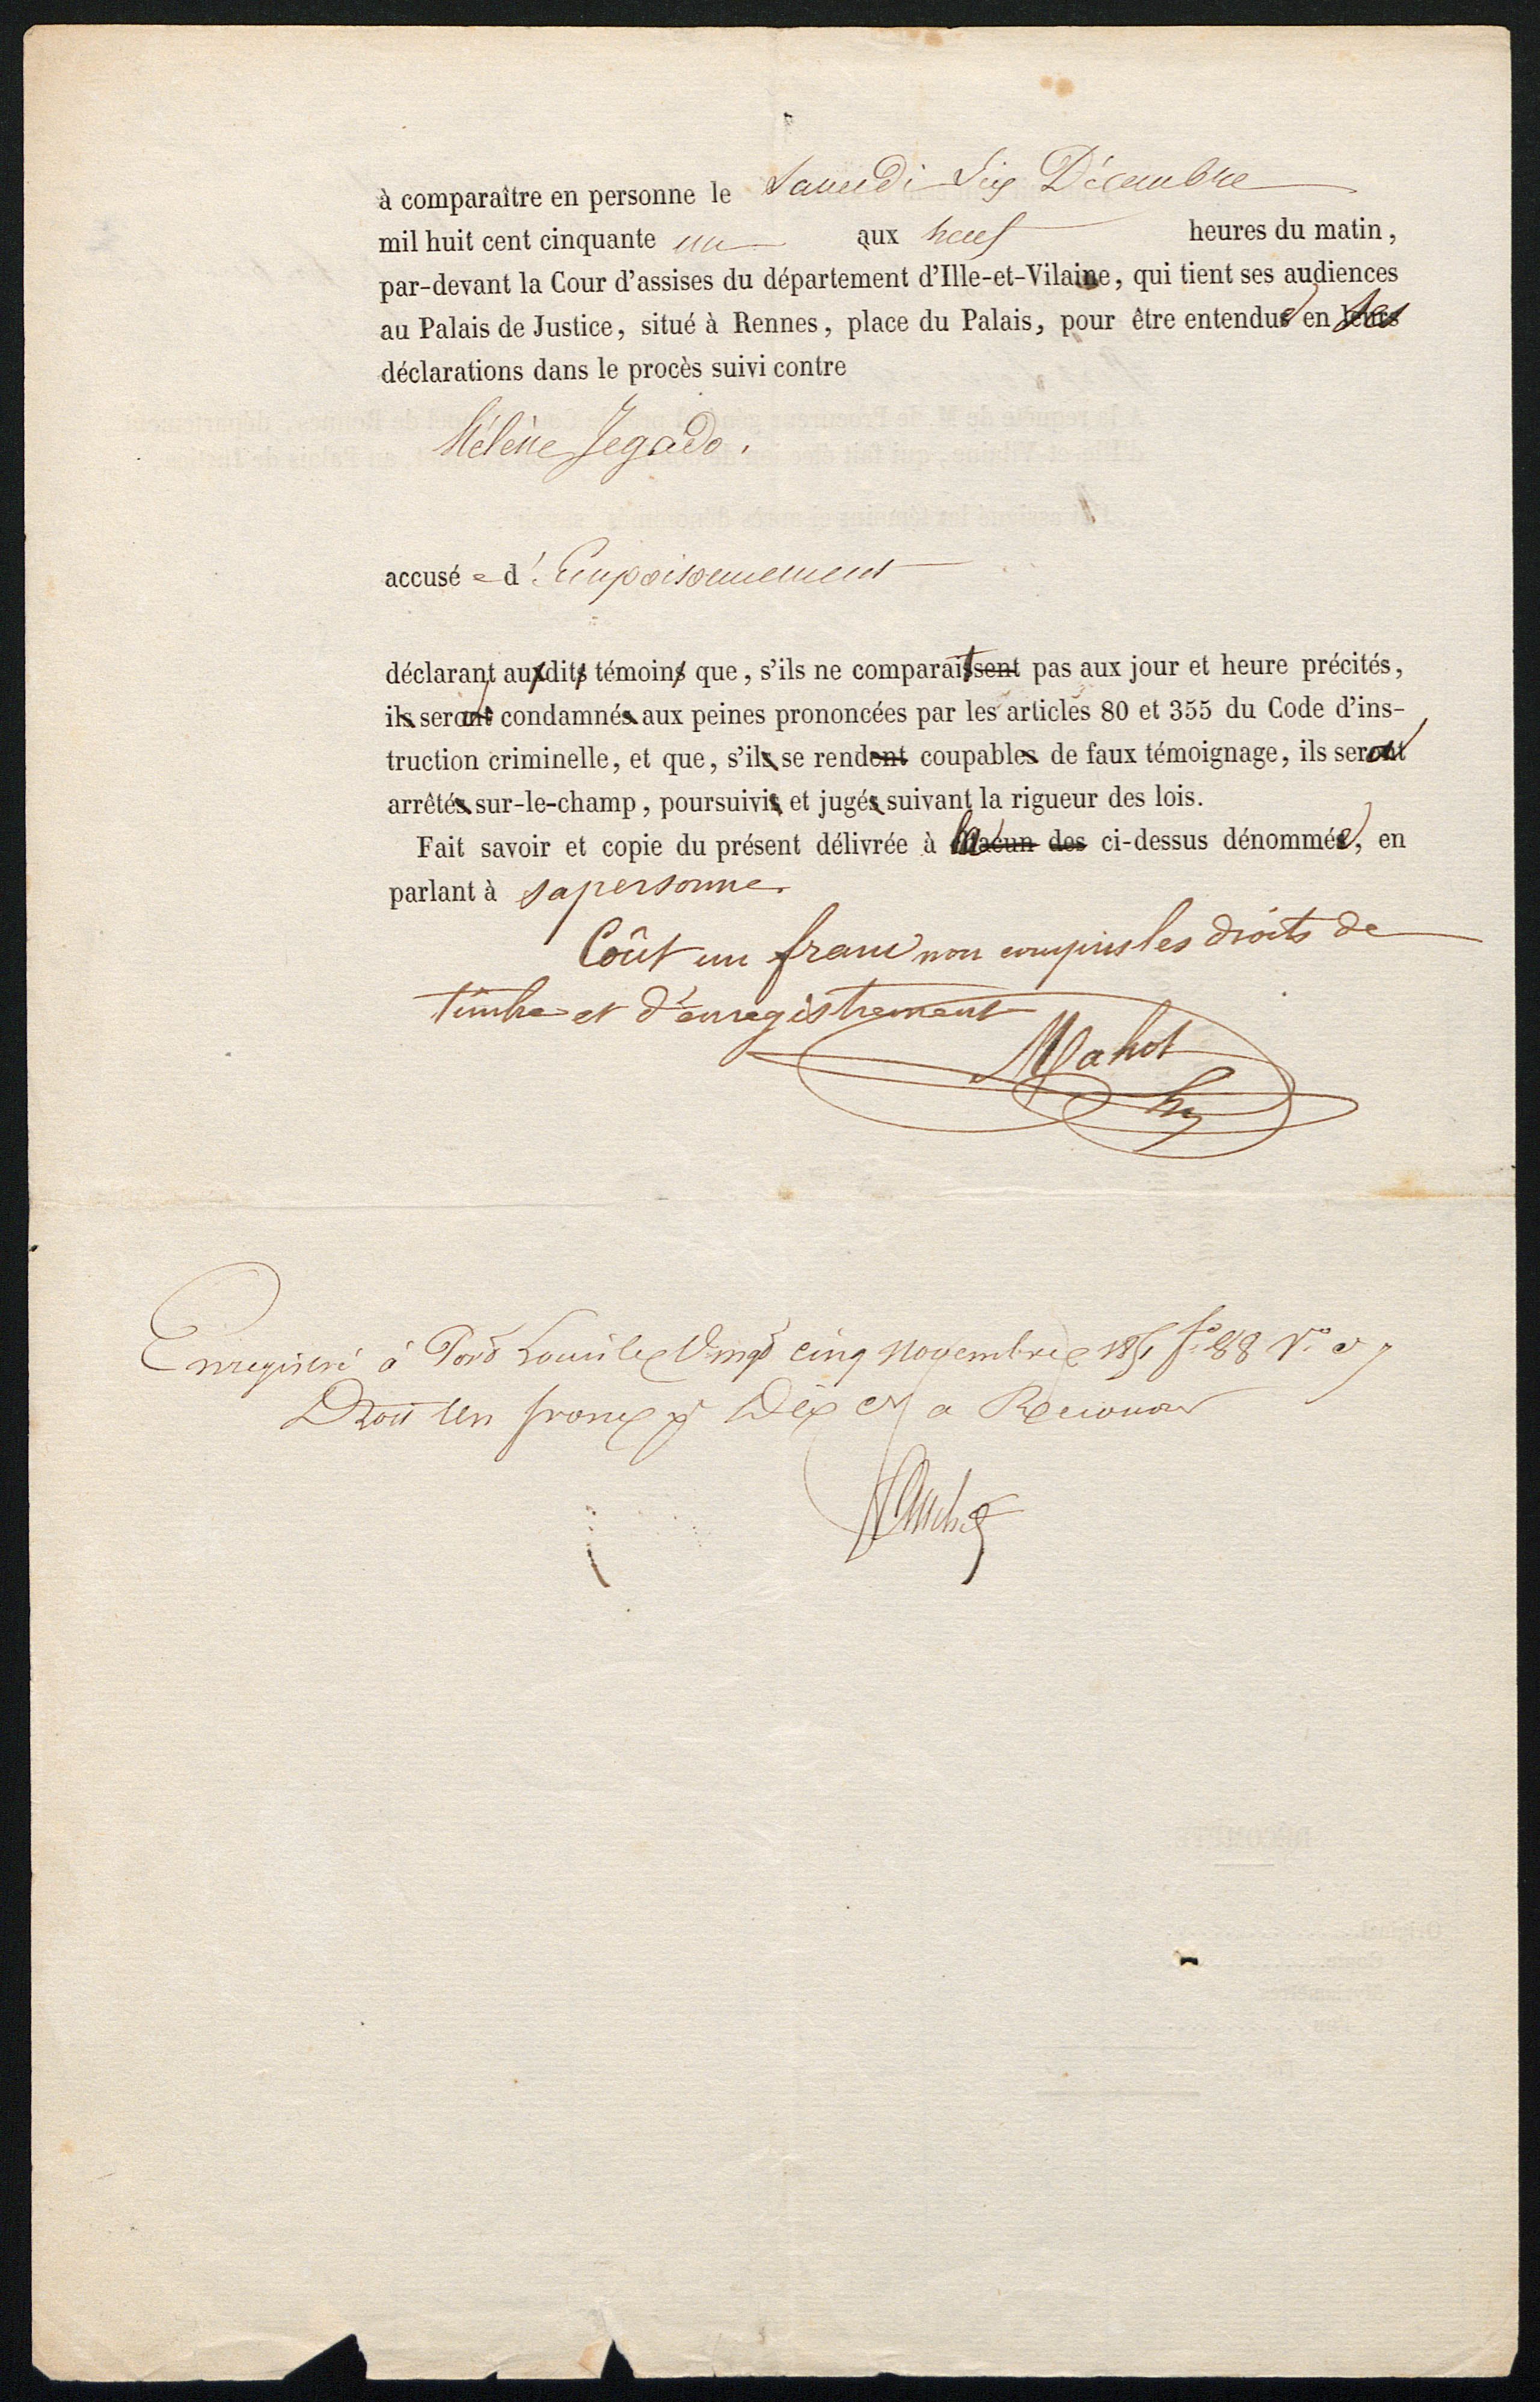 à comparaître en personne le Samedi Six Décembre
mil huit cent cinquante un aux neuf heures du matin,
par-devant la Cour d'assises du département d'Ille-et-Vilaine, qui tient ses audiences
au Palais de Justice, situé à Rennes, place du Palais, pour être entendue en ses
déclarations dans le procès suivi contre
Hélène Jegado.
accusée d'Empoisonnement
déclarant audit témoin que, s'il ne comparait pas aux jour et heure précités,
il sera condamné aux peines prononcées par les articles 80 et 355 du Code d'ins-
truction criminelle, et que, s'il se rend coupable de faux témoignage, il sera
arrêté sur-le-champ, poursuivi et jugé suivant la rigueur des lois.
Fait savoir et copie du présent délivrée à la ci-dessus dénommée, en
parlant à sa personne.
Coût un franc non compris les droits de
timbre et d'enregistrement
Mahot
hr
Enregistré à Port Louis le Vingt cinq novembre 1851 fo 88 Vo c 7
Droit Un franc Dix c a Recouvrer